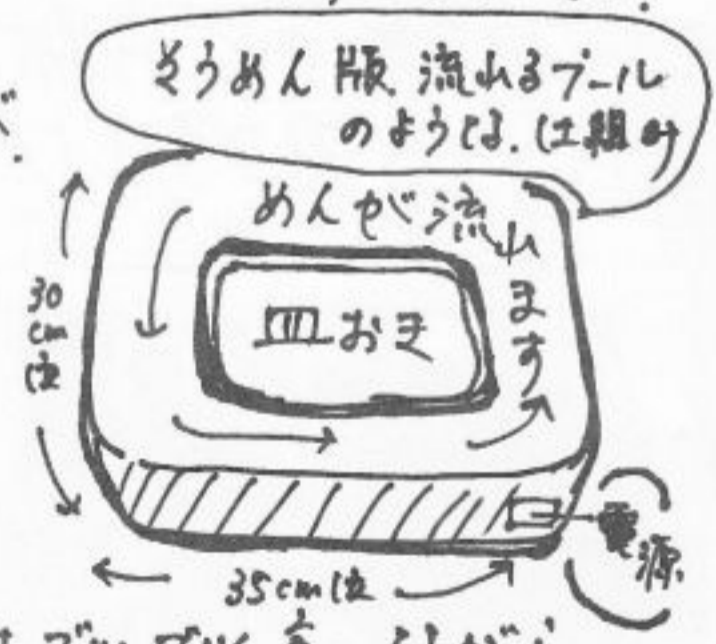 そうめん版、流れるプール
のような、仕組み
めんが流れます
皿おき
30cm位
35cm位
電源